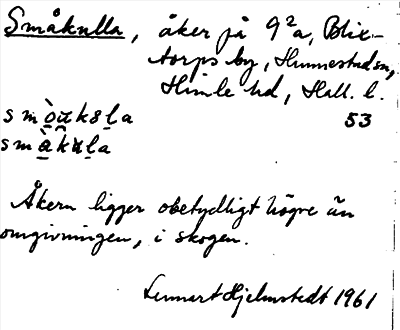 Småkulla, åker på 9²a, Blix-
torps by, Hunnestad sn,
Himle hd, Hall. l.
53
smòu̯kɞḷa
smàkuḷa
Åkern ligger obetydligt högre än
omgivningen, i skogen.
Lennart Hjelmstedt 1961